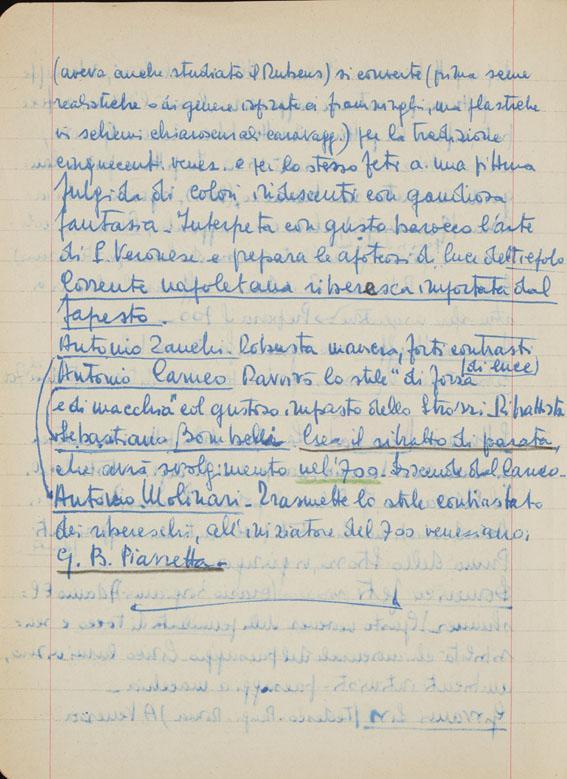 (aveva anche studiato il Rubens) si converte (prima scene
realistiche o di genere ispirate ai fiamminghi, ma plastiche
vi schemi chiaroscurali caravagg.) per la tradizione
cinquecent. venez. e per lo stesso Feti a una pittura
fulgida di colori iridescenti con gaudiosa
fantasia - Interpeta con gusto barocco l'arte
di P. Veronese e prepara le apoteosi di luce del Tiepolo
Corrente napoletana riberesca importata dal
Langetti.
Antonio Zanchi - Robusta maniera, forti contrasti
(di luce)
Antonio Carneo Ravviva lo stile "di forza
e di macchia" col gustoso impasto dello Strozzi. Ritrattista
Sebastiano Bombelli Crea il ritratto di parata,
che avrà svolgimento nel '700. Discende dal Carneo -
Antonio Molinari - Trasmette lo stile contrastato
dei ribereschi, all'iniziatore del 700 veneziano:
G. B. Piazzetta -